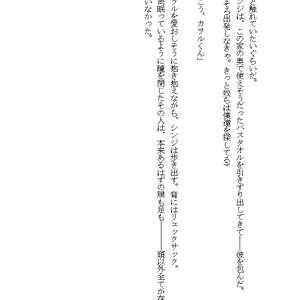 と触れていたいぐらいだ。
ンジは、この家の奥で使えそうだったバスタオルを引きずり出してきて――彼を包んだ。
そろ出発しなきゃ。きっと奴らは僕達を探してる)
こう、カヲルくん」
ヲルを愛おしそうに抱き抱えながら、シンジは歩き出す。背にはリュックサック。
面眠っているように瞳を閉じたその人は、本来あるはずの胴も足も――――頭以外全てが存
いなかった。